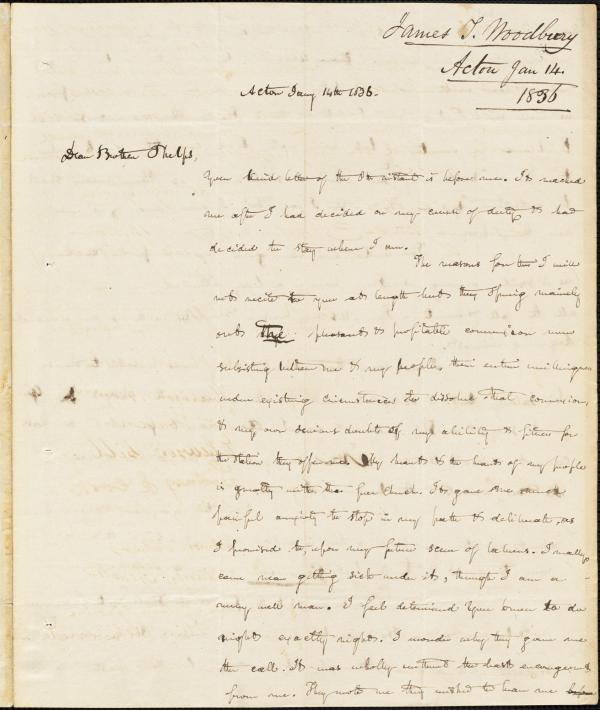 James T. Woodbury
Acton Jan 14.
1836
Acton Jany 14th 1836.
Dear Brother Phelps,
Your kind letter of the instant is before me. It reached
me after I had decided on my course of duty & had
decided to stay where I am.
The reasons for this I will
not recite to you at length but they spring mainly
out the pleasant & profitable connexion now
subsisting between me & my people, their entire unwillingness
under existing circumstances to dissolve that connexion,
& my own serious doubts of my ability & fitness for
the station they offer me. My heart & the heart of my people
is greatly with the free church. It gave me much
painful anxiety to stop in my path & deliberate, as
I promised to, upon my future scene of labours. I really
came near getting sick under it, though I am a
very well man. I feel determined you know to do
right exactly right. I wonder why they gave me
the call. It was wholly without the least encouragement
from me. They wrote me they wished to hear me before